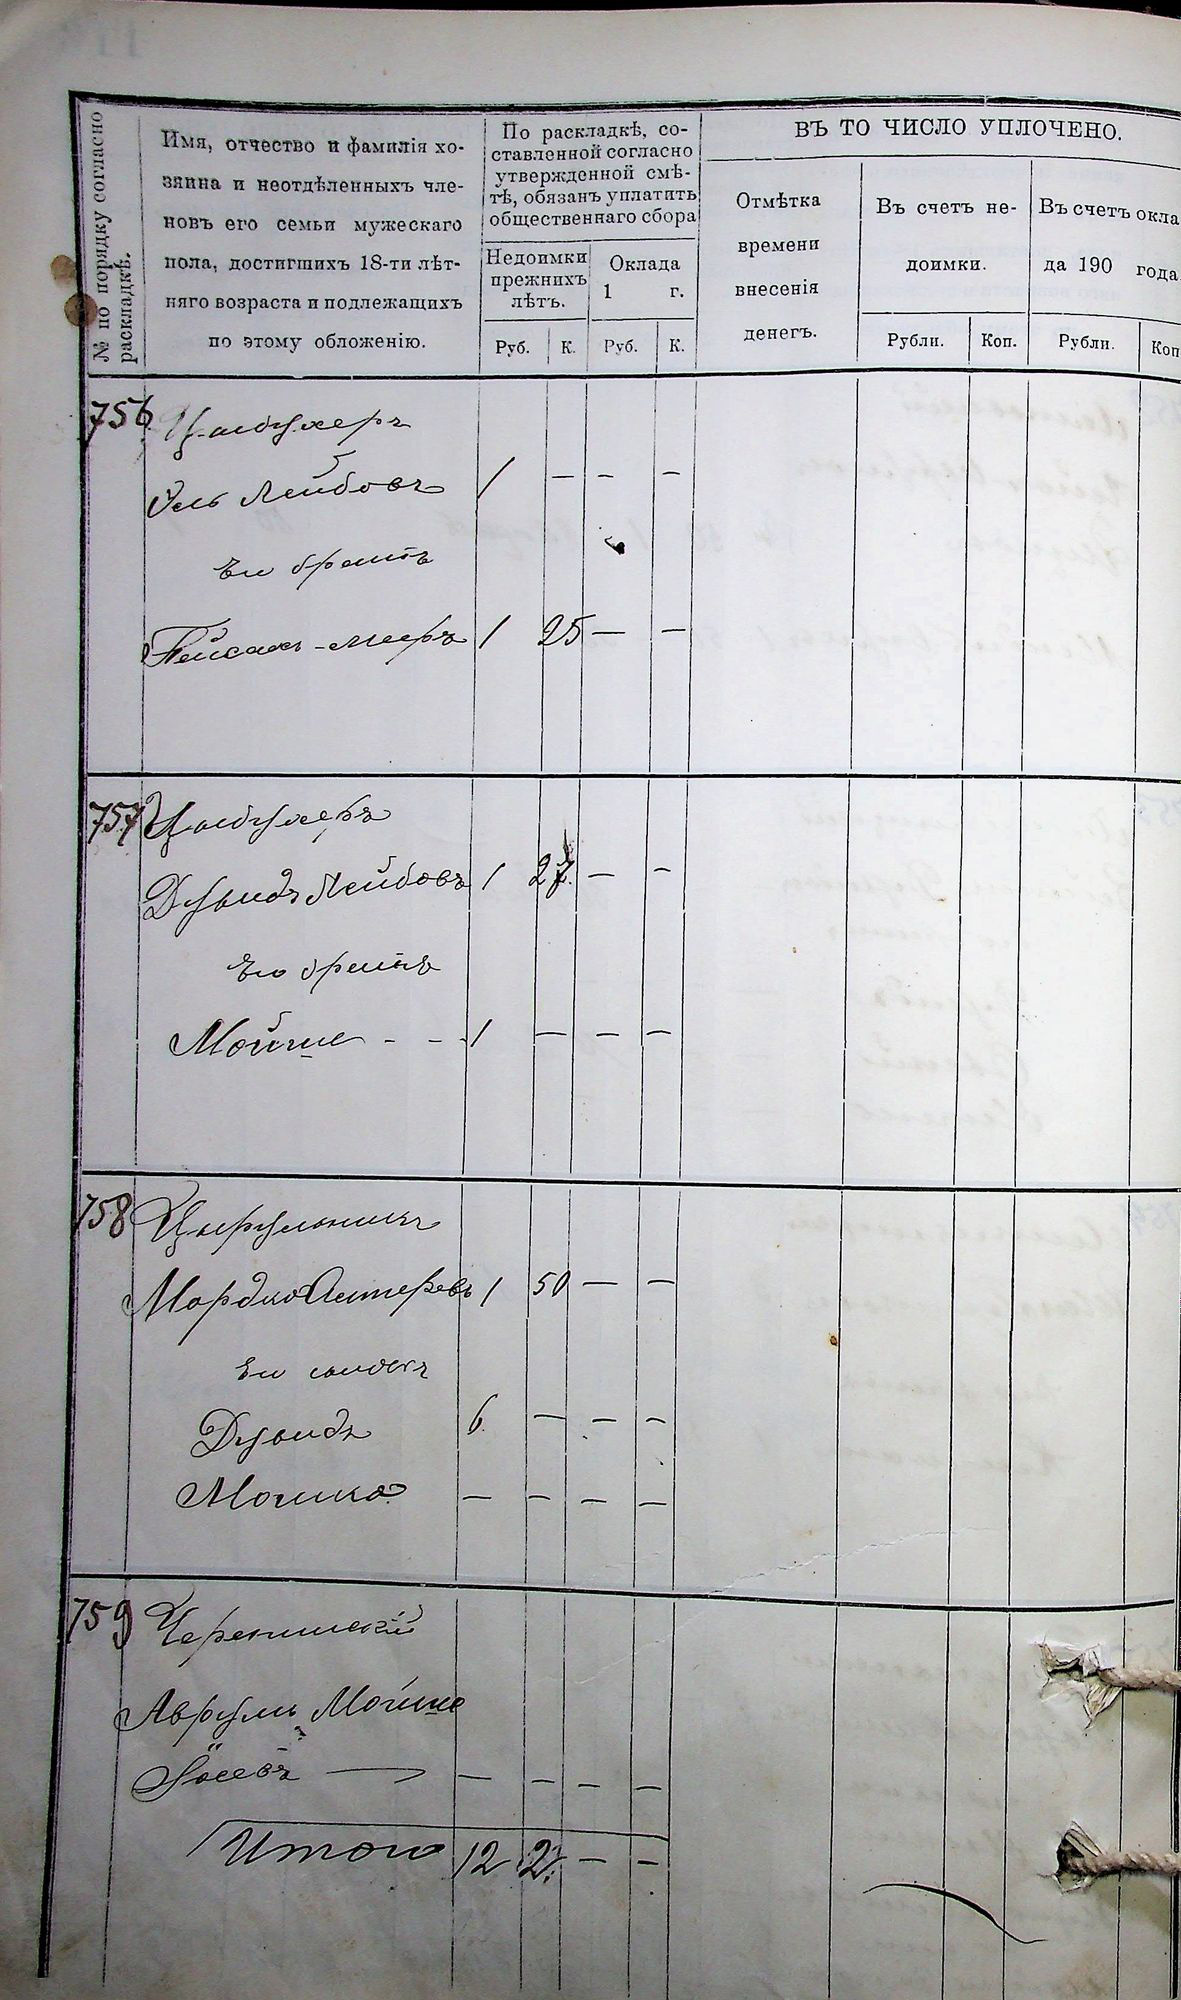 № по порядку согласно
раскладкѣ.
Имя, отчество и фамилія хо-
зяина и неотдѣленныхъ чле-
новъ его семьи мужескаго
пола, достигшихъ 18-ти лѣт-
няго возраста и подлежащихъ
по этому обложенію.
По раскладкѣ, со-
ставленной согласно
утвержденной смѣ-
тѣ, обязанъ уплатить
общественнаго сбора
Недоимки
прежнихъ
лѣтъ.
Оклада
1 г.
Руб. К. Руб. К.
ВЪ ТО ЧИСЛО УПЛОЧЕНО.
Отмѣтка
времени
внесенія
денегъ.
Въ счетъ не-
доимки.
Въ счетъ окла
да 190 года
Рубли. Коп. Рубли. Коп
756
Лейбовъ 1 — — —
Его братъ
Пейсахъ-Мееръ 1 25 — —
757
Дувидъ Лейбовъ 1 — —
Его братъ
Мойше - - 1 — — —
758 Цырульникъ
Мордко 1 50 — —
Его сыновья
Дувидъ 6 — — —
Мошко — — — —
759
Аврумъ Мойше
— — — —
Итого 12 — —